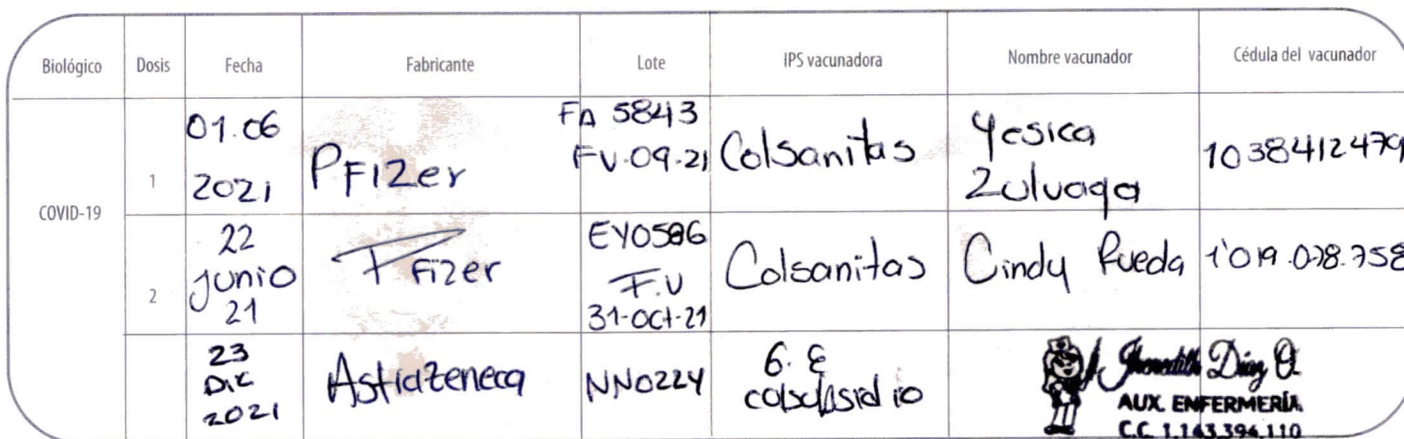 Biológico Dosis Fecha Fabricante Lote IPS vacunadora Nombre vacunador Cédula del vacunador
COVID-19
1 01.06 2021 PFIZer FA 5843 FV.09.21 Colsanitas Yesica Zuluaga 1038412479
2 22 junio 21 PFizer EY0586 F.V 31-oct-21 Colsanitas Cindy Rueda 1'019.078.758
23 Dic 2021 Astrazeneca NN0224 Díaz O.
AUX. ENFERMERÍA
C.C. 1.143.394.110